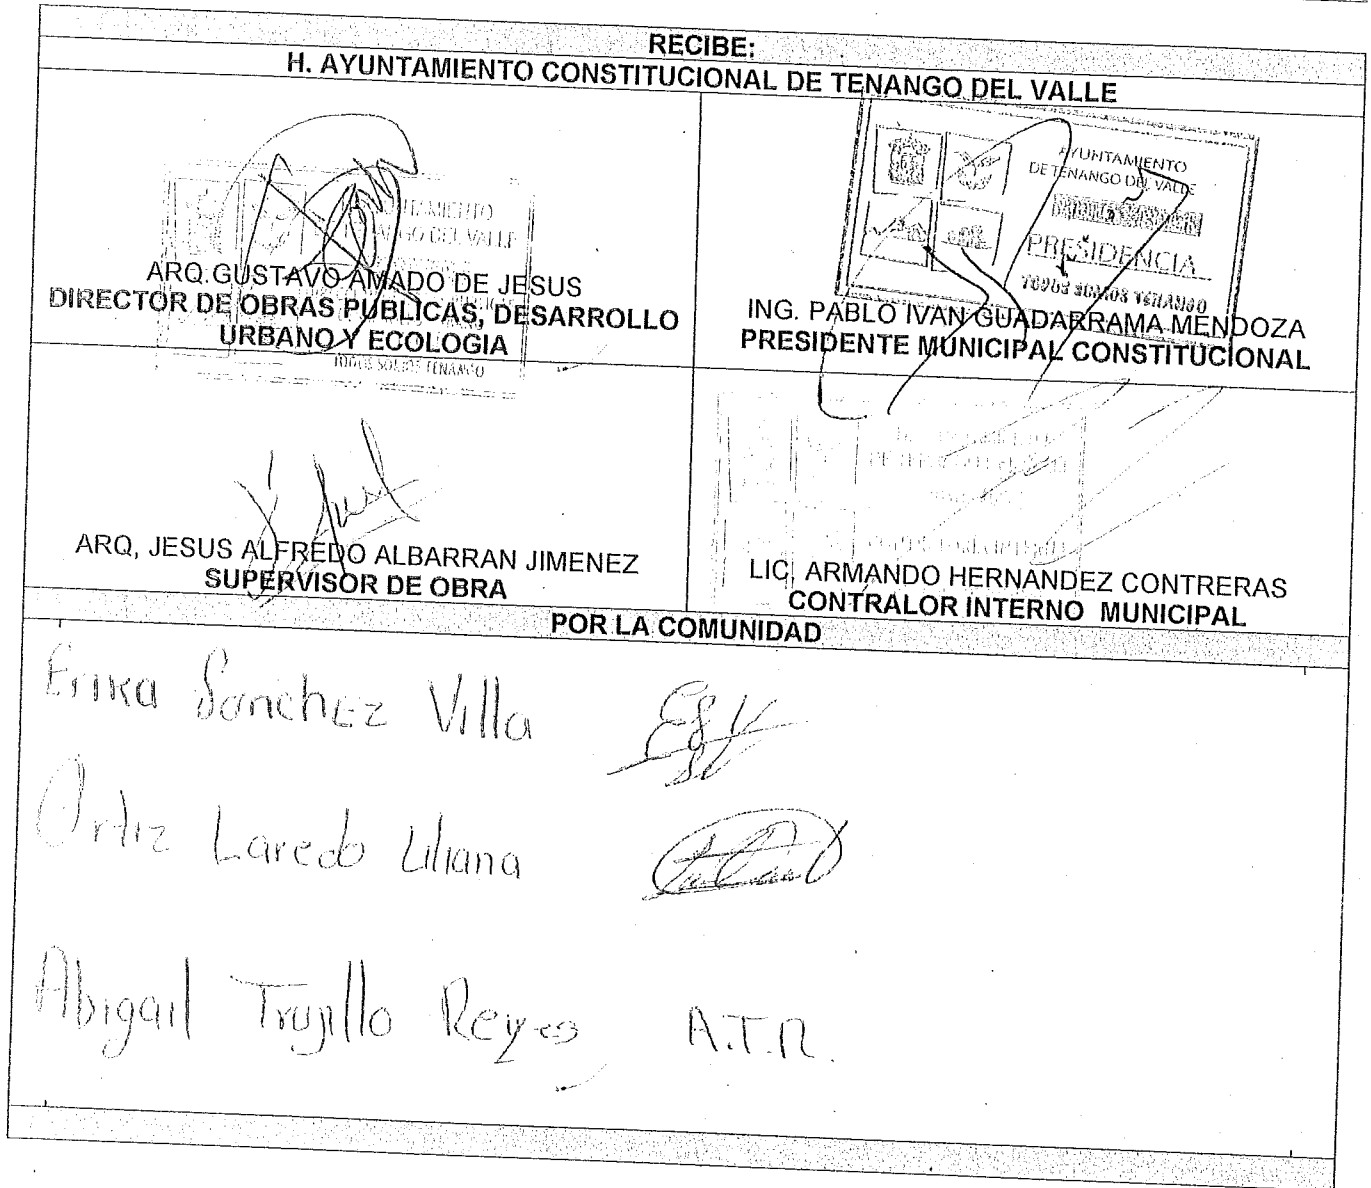 RECIBE:
H. AYUNTAMIENTO CONSTITUCIONAL DE TENANGO DEL VALLE
AYUNTAMIENTO
NANGO DEL VALLE
ARQ. GUSTAVO AMADO DE JESUS
DIRECTOR DE OBRAS PUBLICAS, DESARROLLO
URBANO Y ECOLOGIA
TODOS SOMOS TENANGO
AYUNTAMIENTO
DE TENANGO DEL VALLE
PRESIDENCIA
TODOS SOMOS TENANGO
ING. PABLO IVAN GUADARRAMA MENDOZA
PRESIDENTE MUNICIPAL CONSTITUCIONAL
ARQ, JESUS ALFREDO ALBARRAN JIMENEZ
SUPERVISOR DE OBRA
LIC. ARMANDO HERNANDEZ CONTRERAS
CONTRALOR INTERNO MUNICIPAL
POR LA COMUNIDAD
Erika Sanchez Villa
Ortiz Laredo Liliana
Abigail Trujillo Reyes A.T.R.